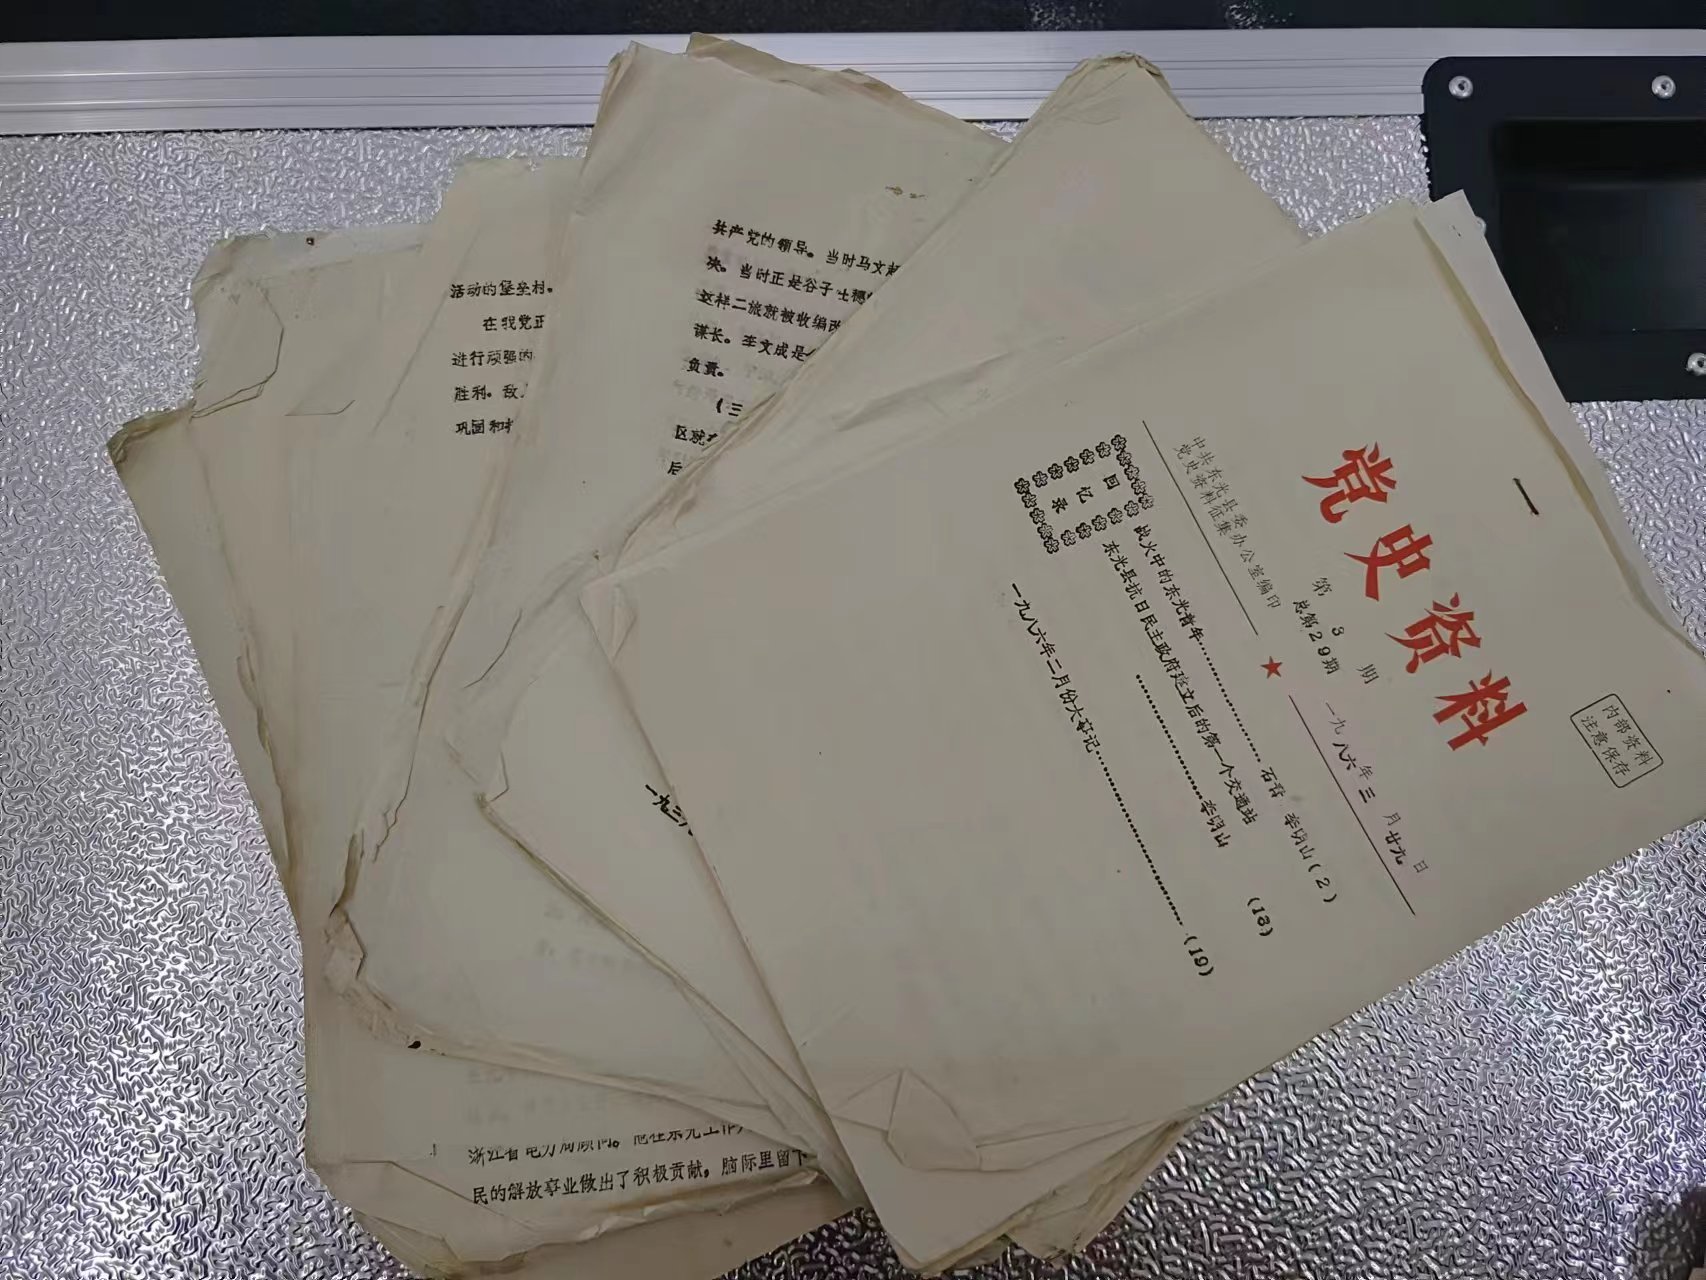 党史资料
内部资料
注意保存
第3期
总第29期
一九八六年三月廿九日
中共东光县委
党史资料征集办公室编印
回忆录
战火中的东光青年
李明山(2)
东光县抗日民主政府建立后的第一个交通站
李明山
(13)
一九八六年二月份大事记
(19)
共产党的领导。当时马文
决。当时正是谷子
这样二旅就被收编改
谋长。李文成是
负责。
(三
区就
后
活动的堡垒村。
在我党正
进行顽强的
胜利。敌人
巩固和
一九三八
浙江省电力局顾问。他在东光工作
民的解放事业做出了积极贡献,脑际里留下